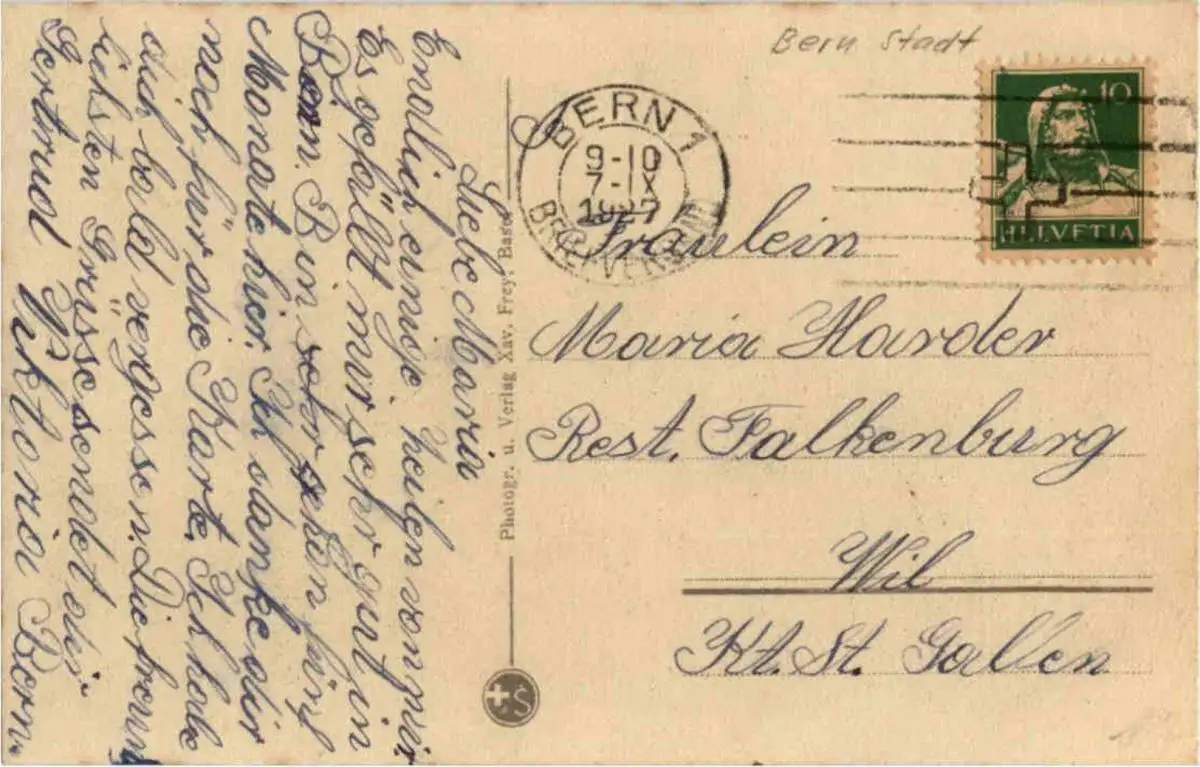 Bern Stadt
10
HELVETIA
BERN 1
9-10
7-IX
1927
BRIEFVERSAND
Liebe Maria
Endlich einnige. zeilen von mir
Es gefällt mir sehr gut in
Bern. Bin schon fünf
Monate hier. Ich danke dir
noch für die Karte. Ich habe
dich bald vergessen. Die freund
lichsten Grüsse sendet dir
Gertrud Viktoria Bern.
Photogr. u. Verlag Xav. Frey, Basel
Fräulein
Maria Harder
Rest. Falkenburg
Wil
Kt. St. Gallen